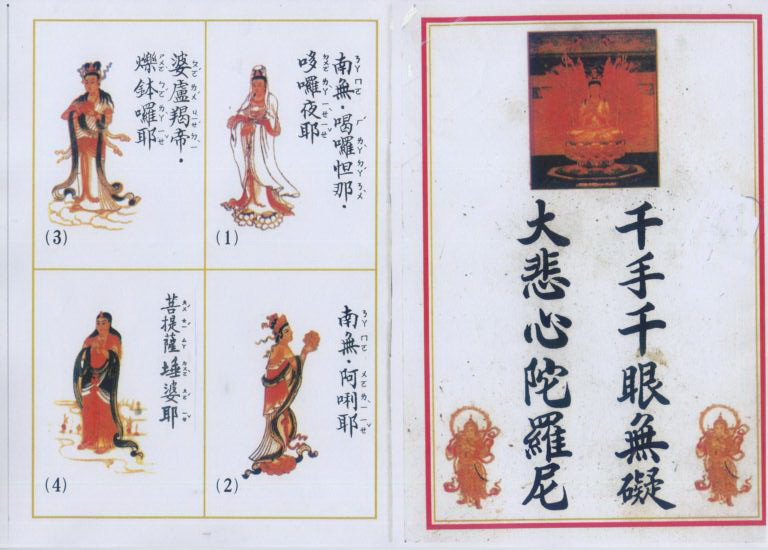 千手千眼無礙
大悲心陀羅尼
南無·喝囉怛那·
哆囉夜耶
(1)
南無·阿唎耶
(2)
婆盧羯帝·
爍鉢囉耶
(3)
菩提薩埵婆耶
(4)